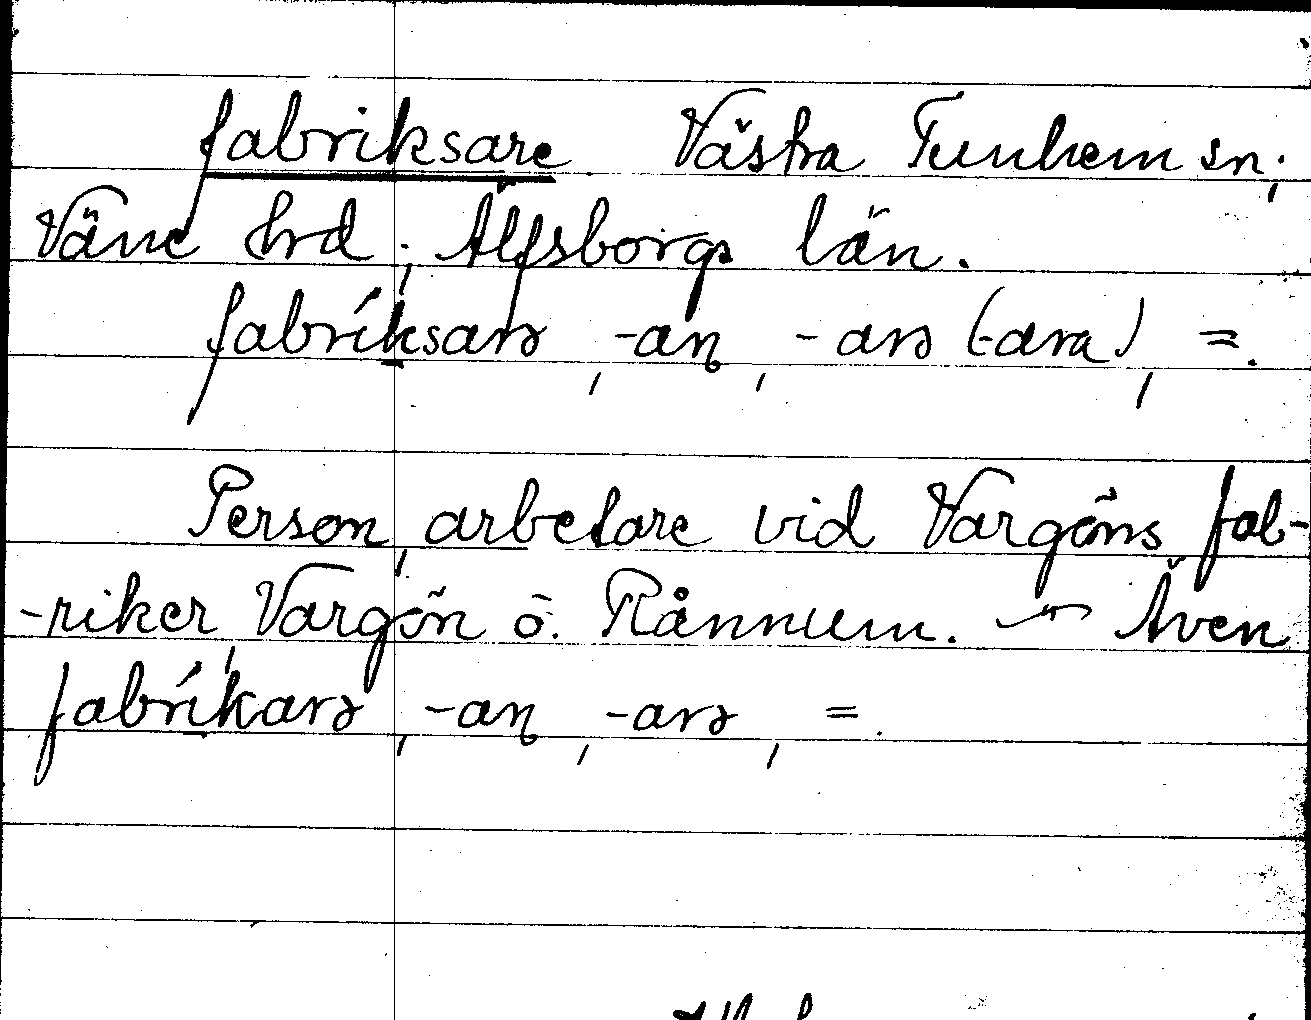 fabriksare Västra Tunhem sn;
Väne hrd; Älfsborgs län.
fabríksarɘ, -aη, -arɘ (-ara), =.
Person, arbetare vid Vargöns fab-
-riker, Vargön o. Rånnum. — Även
fabríkarɘ, -aη, -arɘ, =.